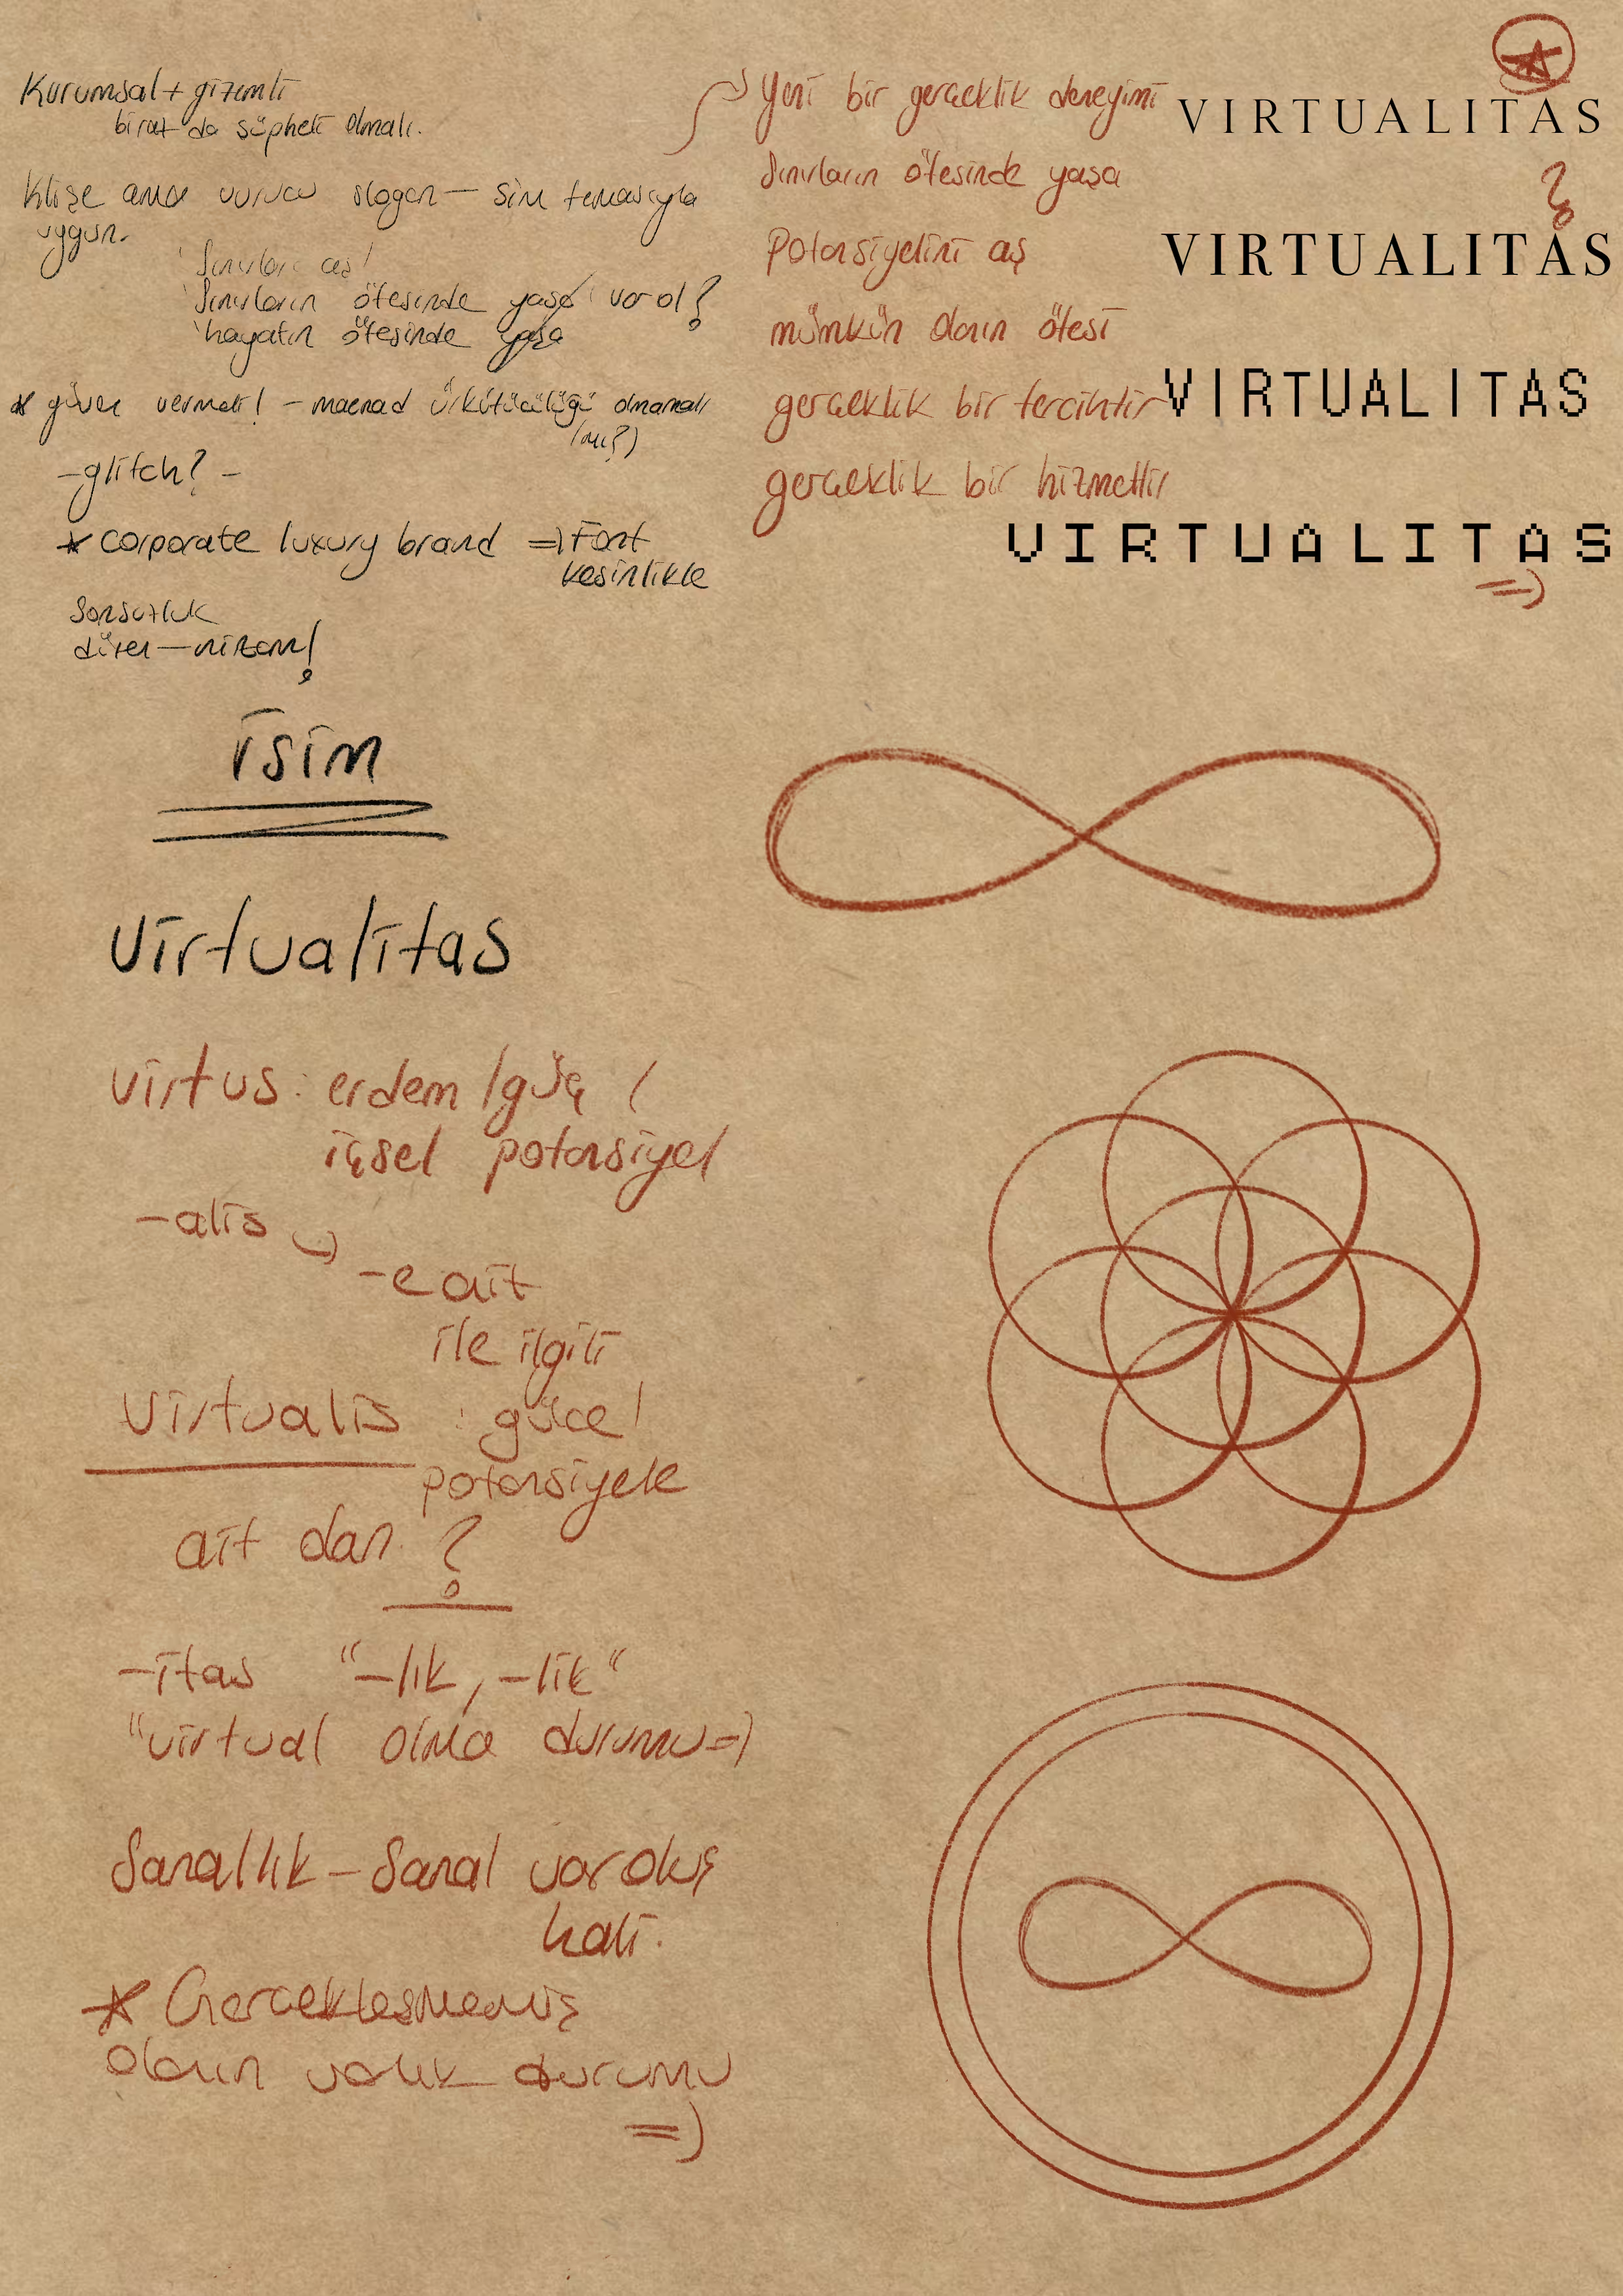 Kurumsal + gizemli
biraz da şüpheli olmalı.
Klişe ama vurucu slogan — sim temasıyla
uygun.
'Sınırları aş!
'Sınırların ötesinde yaşa / var ol?
'hayatın ötesinde yaşa
* güven vermeli! - maenad ürkütücülüğü olmamalı
(mı?)
- glitch? -
* corporate luxury brand => Font
kesinlikle
Sonsuzluk
düzen — nizam!
isim
Virtualitas
virtus: erdem / güç /
içsel potansiyel
-alis
-e ait
ile ilgili
Virtualis : güce /
potansiyele
ait olan ?
-itas "-lık, -lik"
"virtual olma durumu =)
Sanallık - Sanal varoluş
hali.
* Gerçekleşmemiş
olanın varlık durumu
=)
Yeni bir gerçeklik deneyimi
Sınırların ötesinde yaşa
Potansiyelini aş
mümkün olanın ötesi
gerçeklik bir tercihtir
gerçeklik bir hizmettir
VIRTUALITAS
?
VIRTUALITAS
VIRTUALITAS
VIRTUALITAS
=)